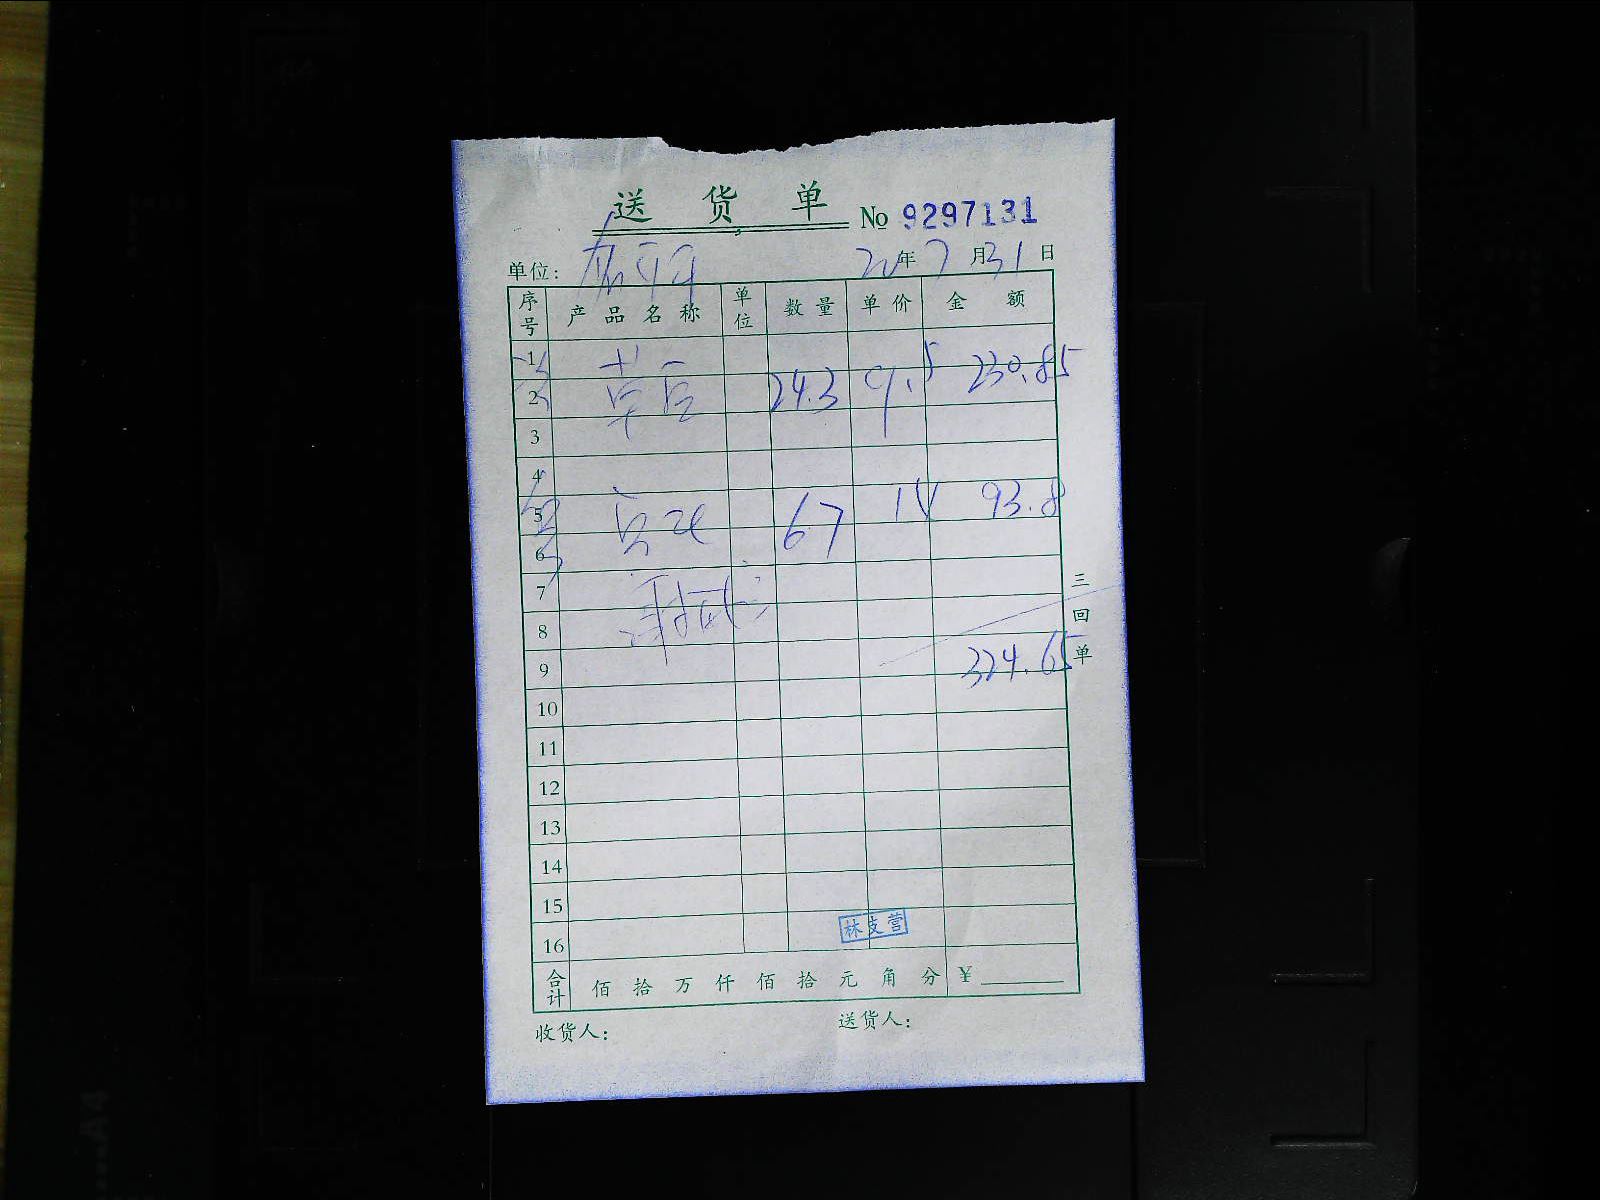 送货单 No 9297131
单位： 20年7月31日
序号 产品名称 单位 数量 单价 金额
1
2 24.3 9.5 230.85
3
4
5 6.7 14 93.8
6
7
8
9 324.65
10
11
12
13
14
15
16
林支营
合计 佰拾万仟佰拾元角分 ¥
收货人： 送货人：
三回单
A4